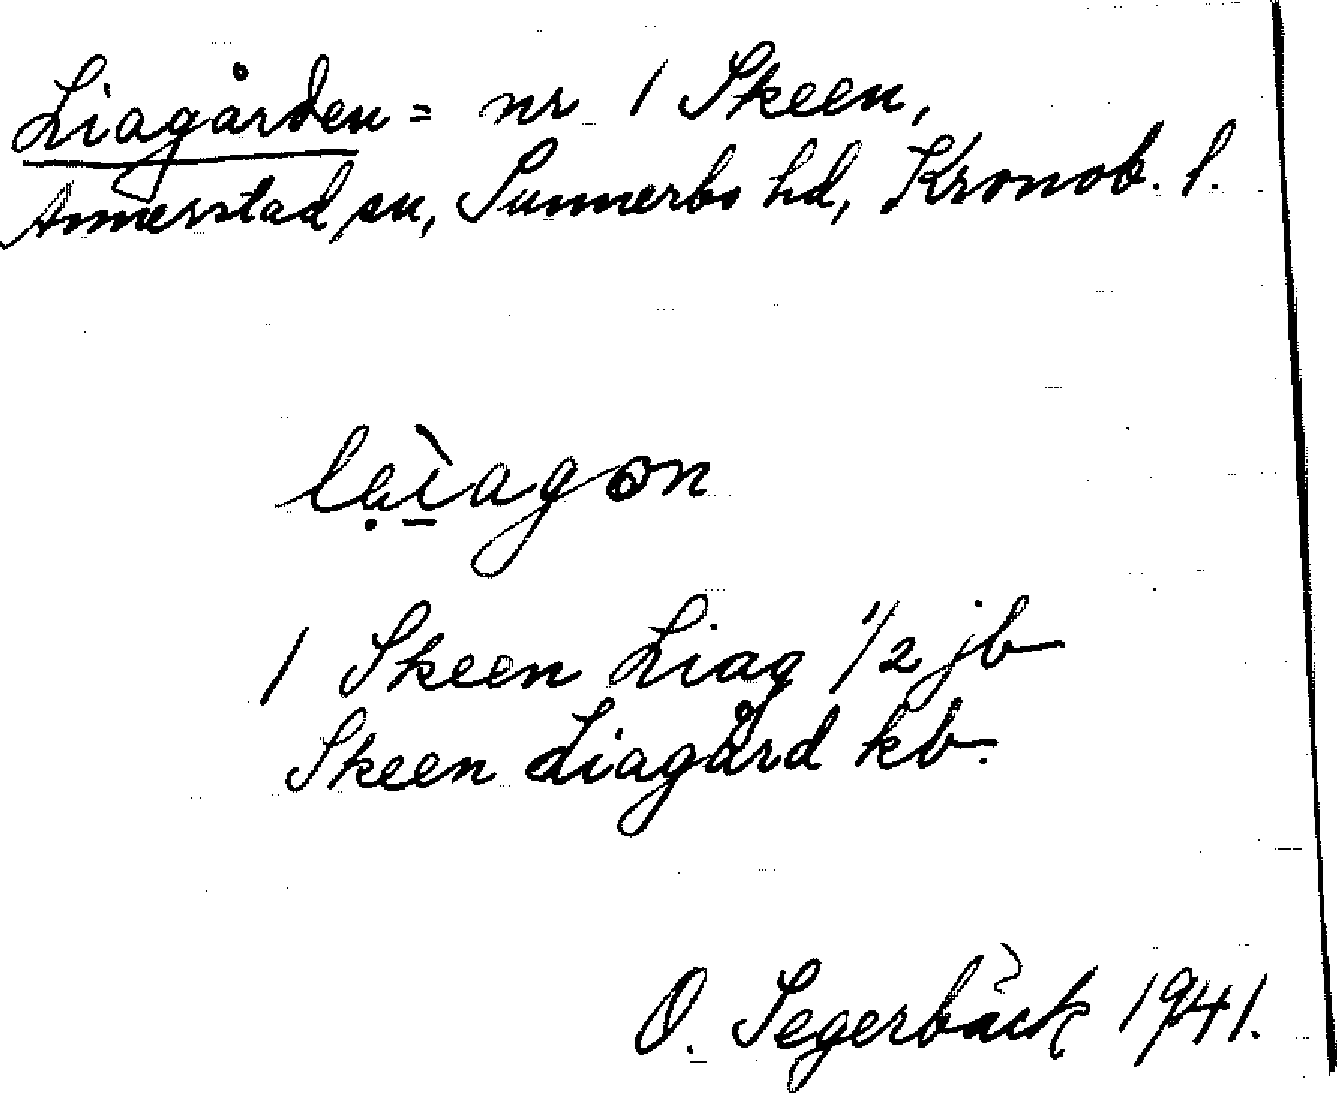 Liagården = nr 1 Skeen,
Annerstad sn, Sunnerbo hd, Kronob. l.
1 Skeen Liag 1/2 jb
Skeen Liagård kb.
O. Segerbäck 1941.